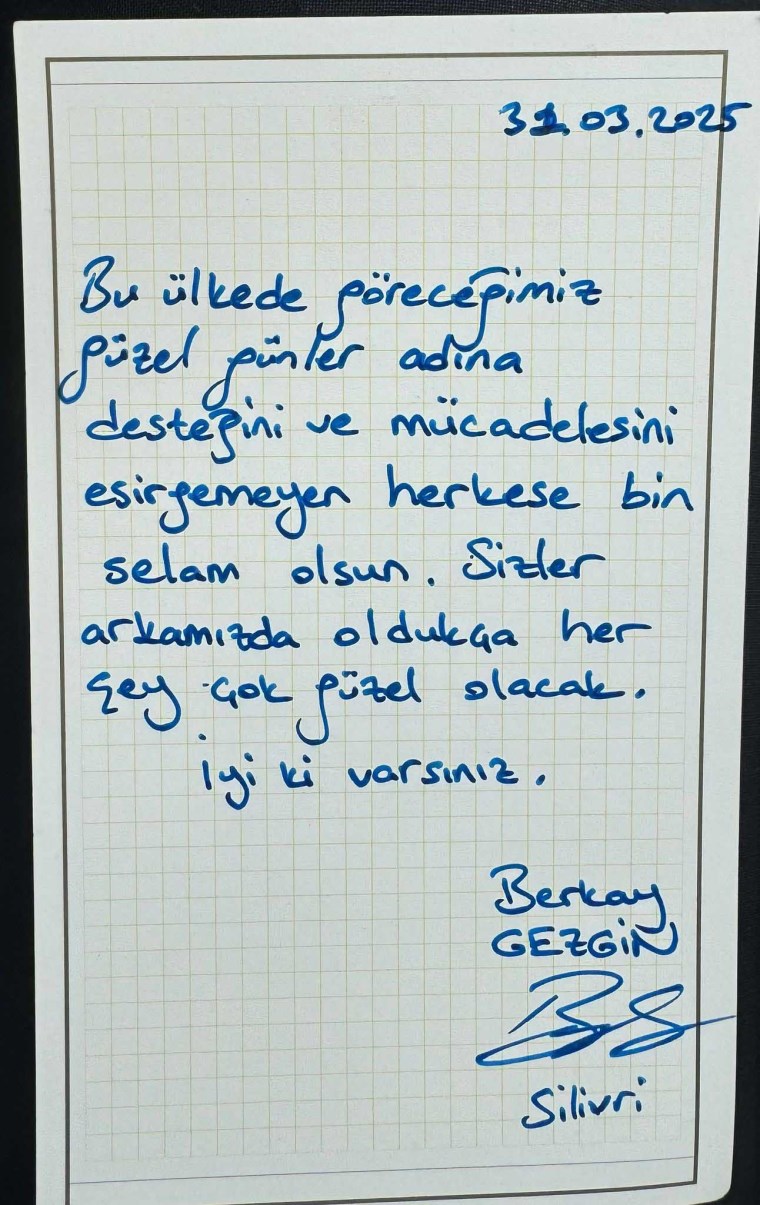 31.03.2025
Bu ülkede göreceğimiz
güzel günler adına
desteğini ve mücadelesini
esirgemeyen herkese bin
selam olsun. Sizler
arkamızda oldukça her
şey çok güzel olacak.
İyi ki varsınız.
Berkay
GEZGİN
Silivri